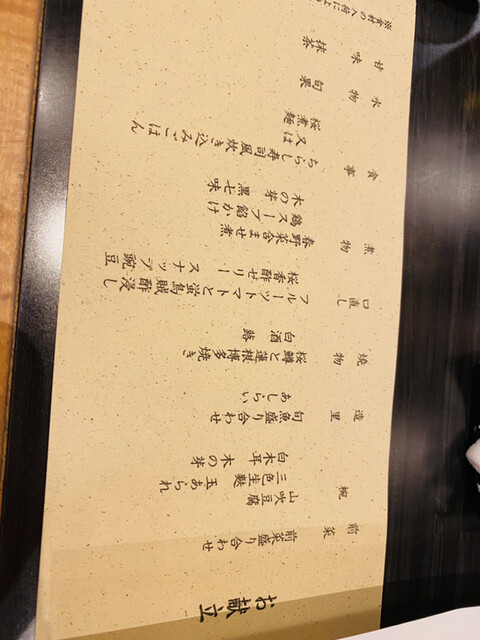 お献立
前菜
前菜盛り合わせ
椀
山吹豆腐
三色生麩 玉あられ
白木耳 木の芽
造里
旬魚盛り合わせ
あしらい
焼物
桜鱒と蓮根博多焼き
白酒 蕗
口直し
フルーツトマトと蛍烏賊酢浸し
桜香酢ゼリー スナップ豌豆
煮物
春野菜含ませ煮
鶏スープ餡かけ
木の芽 黒七味
食事
ちらし寿司風炊き込みごはん
又は
桜煮麺
水物
旬果
甘味
抹茶
※食材の入荷によ